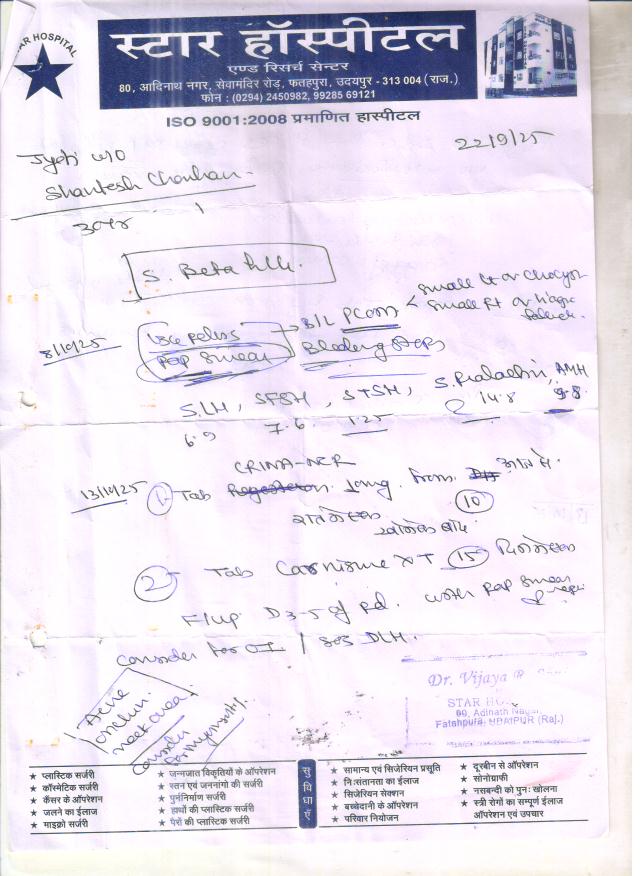 STAR HOSPITAL
स्टार हॉस्पीटल
एण्ड रिसर्च सेन्टर
80, आदिनाथ नगर, सेवामंदिर रोड़, फतहपुरा, उदयपुर - 313 004 (राज.)
फोन : (0294) 2450982, 99285 69121
ISO 9001:2008 प्रमाणित हास्पीटल
22/9/25
Jyoti w/o
Shantesh Chouhan
30yr
S. Beta hCG.
8/10/25
USG Pelvis
B/L PCOM
small Lt ov
small Rt ov
Pap smear
S.LH, S.FSH, S.TSH, S. Prolactin, AMH
6.9 7.6 1.25 14.8 9.8
13/10/25
CRINA-NCR
1 Tab 10mg from
10
2 Tab Carnisure XT 15
F/up D3-5 of Pd. with Pap smear
Consider for OI / SOS DLH.
Acne
Consider
Dr. Vijaya
STAR
Adinath Nagar,
Fatahpura, UDAIPUR (Raj.)
सुविधाएँ
★ प्लास्टिक सर्जरी
★ कॉस्मेटिक सर्जरी
★ कैंसर के ऑपरेशन
★ जलने का ईलाज
★ माइक्रो सर्जरी
★ जन्मजात विकृतियों के ऑपरेशन
★ स्तन एवं जननांगो की सर्जरी
★ पुर्ननिर्माण सर्जरी
★ हाथों की प्लास्टिक सर्जरी
★ पैरों की प्लास्टिक सर्जरी
★ सामान्य एवं सिजेरियन प्रसूति
★ नि:संतानता का ईलाज
★ सिजेरियन सेक्शन
★ बच्चेदानी के ऑपरेशन
★ परिवार नियोजन
★ दूरबीन से ऑपरेशन
★ सोनोग्राफी
★ नसबन्दी को पुन: खोलना
★ स्त्री रोगों का सम्पूर्ण ईलाज
ऑपरेशन एवं उपचार